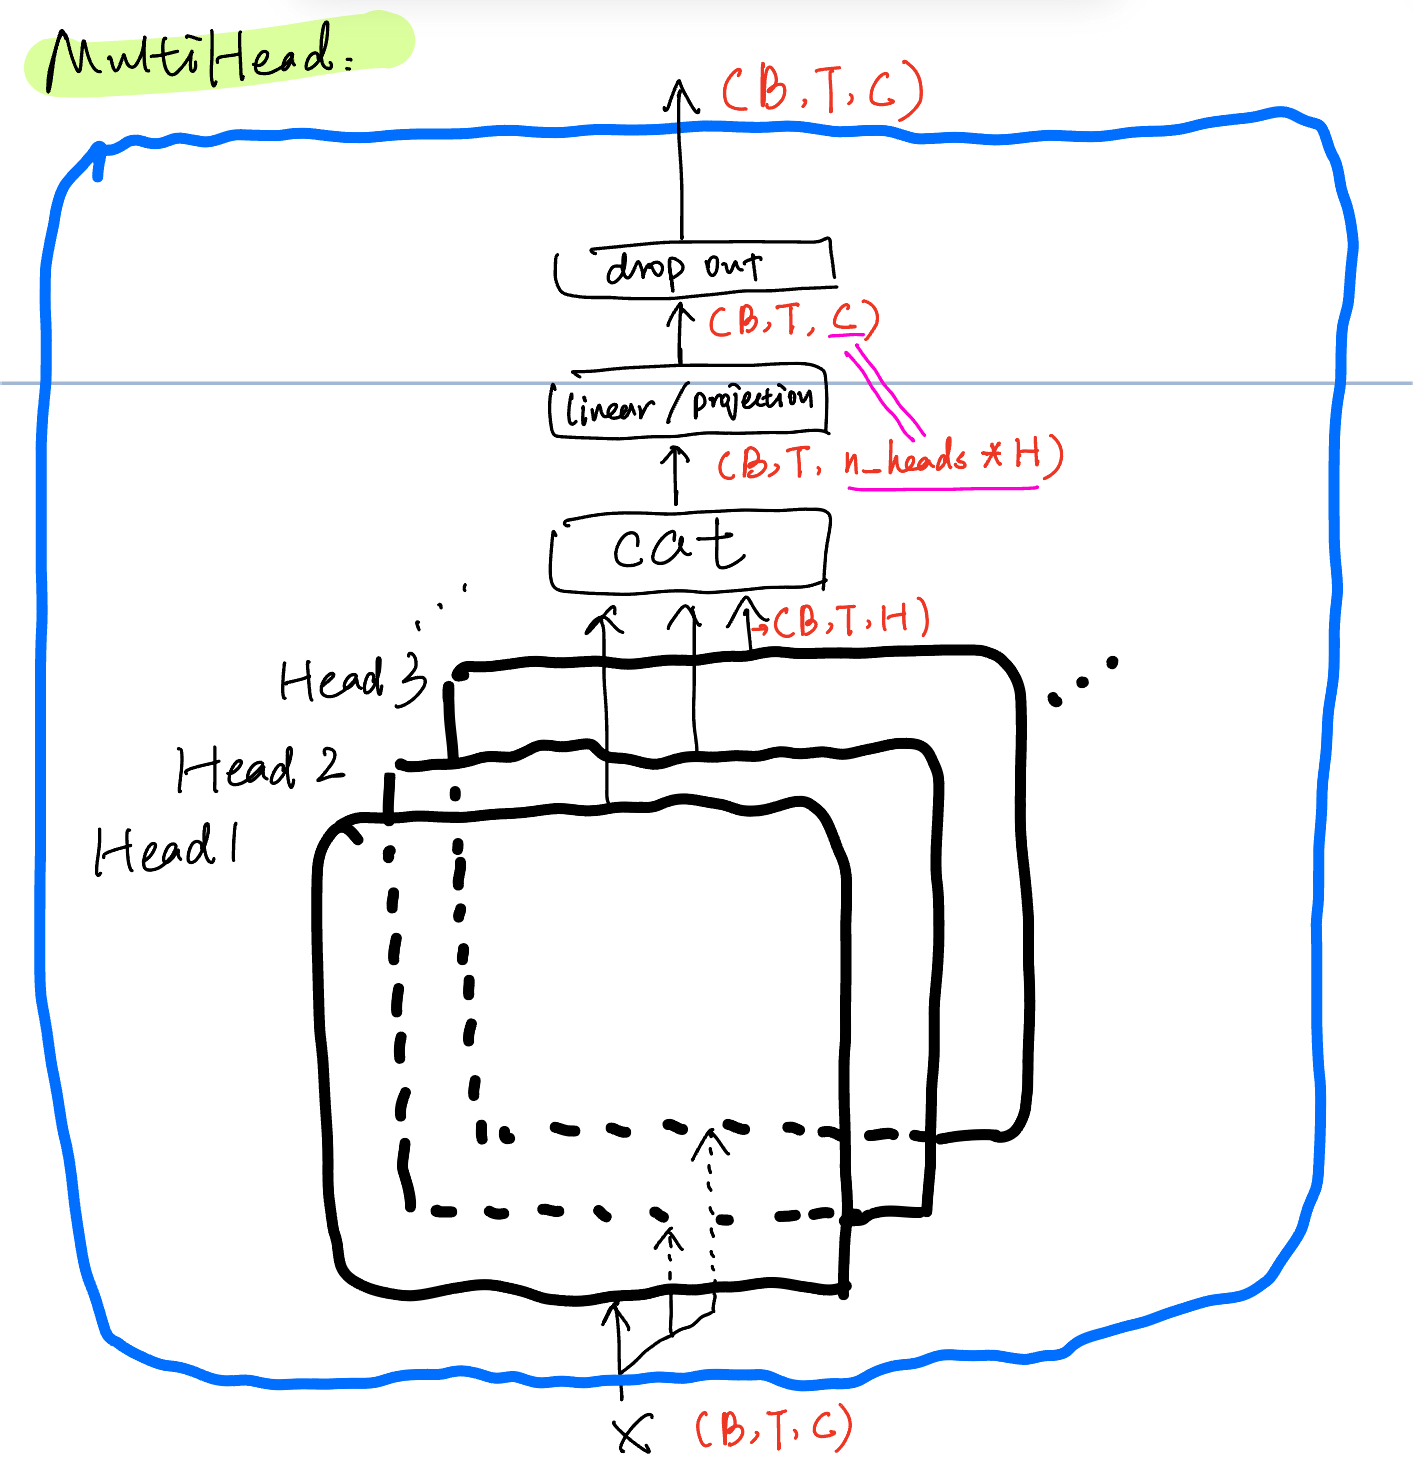 MultiHead:
(B, T, C)
drop out
(B, T, C)
linear / projection
(B, T, n_heads * H)
cat
(B, T, H)
Head 3
Head 2
Head 1
X (B, T, C)